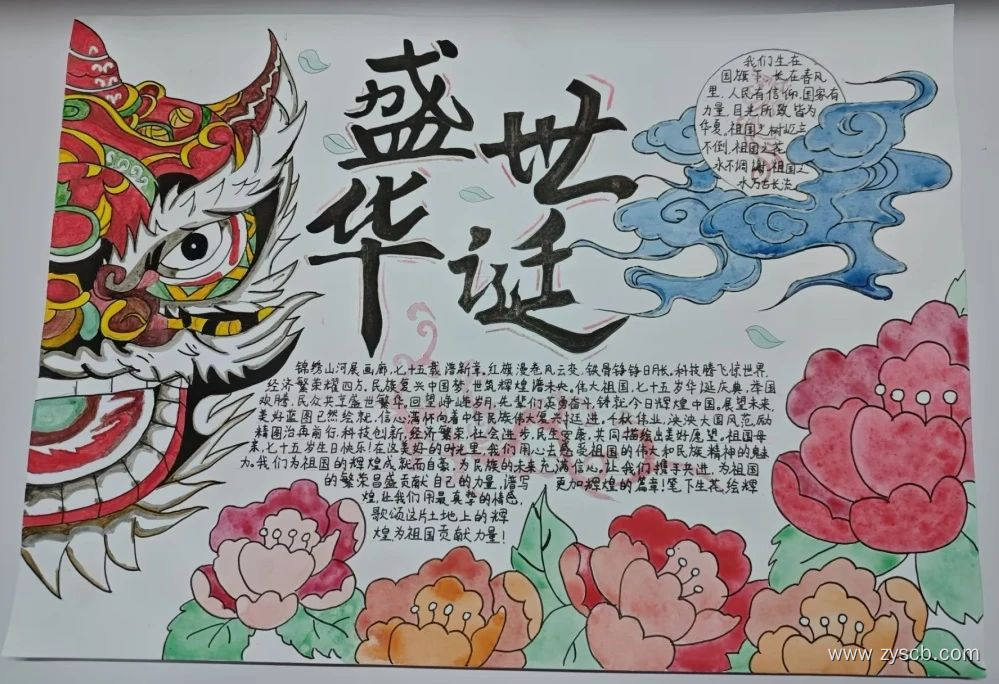 盛世
华诞
我们生在
国旗下,长在春风
里,人民有信仰,国家有
力量,目光所致皆为
华夏。祖国之树屹立
不倒,祖国之花
永不凋谢,祖国之
水万古长流
锦绣山河展画廊,七十五载谱新章。红旗漫卷风云变,铁骨铮铮日月长。科技腾飞惊世界,
经济繁荣耀四方。民族复兴中国梦,世筑辉煌谱未央。伟大祖国,七十五岁华诞庆典,举国
欢腾,民众共享盛世繁华。回望峥嵘岁月,先辈们英勇奋斗,铸就今日辉煌中国。展望未来,
美好蓝图已然绘就,信心满怀向着中华民族伟大复兴挺进。千秋伟业,泱泱大国风范,励
精图治再前行,科技创新,经济繁荣,社会进步,民生安康,共同描绘出美好愿望。祖国母
亲,七十五岁生日快乐!在这美好的时光里,我们用心去感受祖国的伟大和民族精神的魅
力。我们为祖国的辉煌成就而自豪,为民族的未来充满信心。让我们携手共进,为祖国
的繁荣昌盛贡献自己的力量,谱写
更加辉煌的篇章!笔下生花,绘辉
煌,让我们用最真挚的情感,
歌颂这片土地上的辉
煌,为祖国贡献力量!
www.zyscb.com